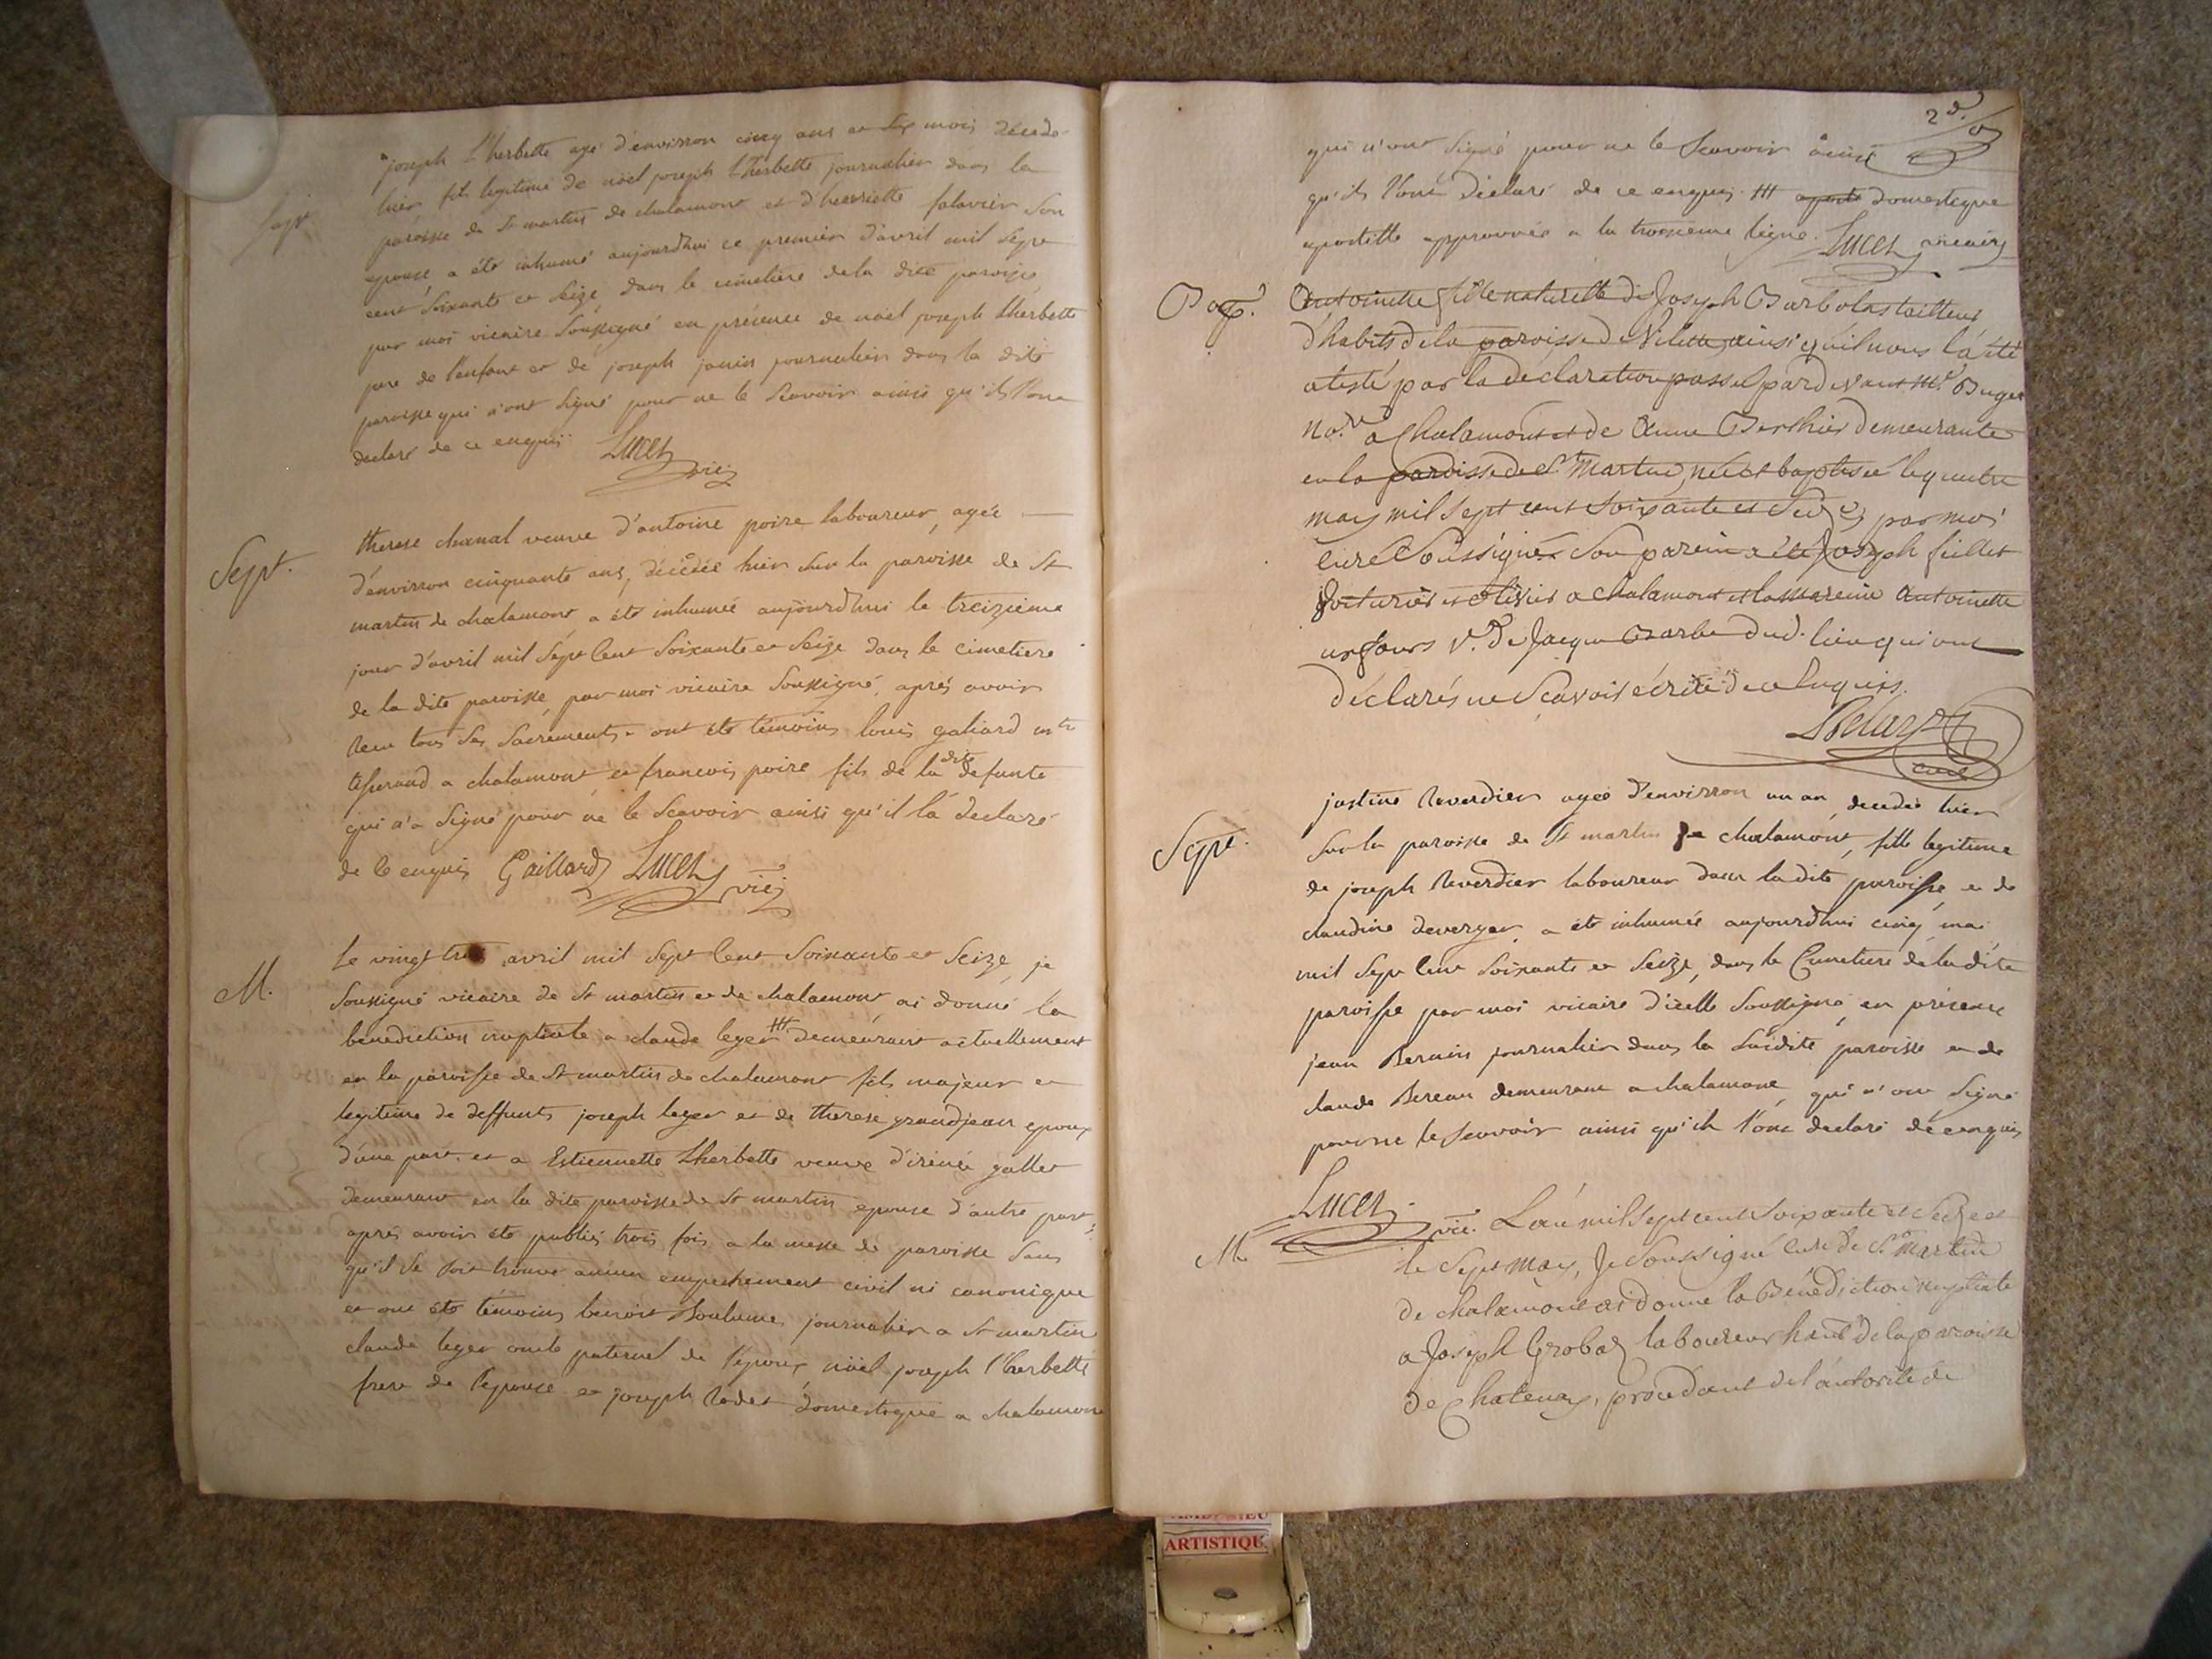 Sept
joseph L'herbette agé d'environ cinq ans et six mois décédé
hier fils legitime de noël joseph L'herbette journalier dans la
paroisse de St martin de chalamont et d'henriette falavier son
epouse, a été inhumé aujourdhui ce premier d'avril mil sept
cent soixante et seize dans le cimetière de la dite paroisse
par moi vicaire soussigné en présence de noël joseph Lherbette
pere de l'enfant et de joseph janin journalier dans la dite
paroisse qui n'ont signé pour ne le scavoir ainsi qu'ils l'ont
declaré de ce enquis Lucet
vic.
Sept.
therese chanal veuve d'antoine poire laboureur, agée
d'environ cinquante ans, décédée hier sur la paroisse de St
martin de chalamont, a été inhumée aujourdhui le treizieme
jour d'avril mil sept cent soixante et seize dans le cimetiere
de la dite paroisse, par moi vicaire soussigné, après avoir
reçu tous ses sacrements. ont été témoins louis galiard mtre
tisserand a chalamont et francois poire fils de la dite defunte
qui n'a signé pour ne le scavoir ainsi qu'il l'a declaré
de ce enquis Gaillard Lucet vic.
M.
Le vingt trois avril mil sept cent soixante et seize, je
soussigné vicaire de St martin et de chalamont, ai donné la
bénédiction nuptiale a claude leger ⧻ demeurant actuellement
en la paroisse de St martin de chalamont fils majeur et
legitime de deffunts joseph leger et de therese grandjean epoux
d'une part. et a Estiennette Lherbette veuve d'irénée gallet
demeurant en la dite paroisse de St martin epouse d'autre part,
après avoir été publiés trois fois a la messe de paroisse sans
qu'il se soit trouvé aucun empechement civil ni canonique
et ont été témoins benoit journalier a St martin
claude leger oncle paternel de l'epoux, noël joseph l'herbette
frere de l'epouse et joseph Rodet domestique a chalamont
2d.
qui n'ont signé pour ne le scavoir ainsi
qu'ils l'ont déclaré de ce enquis. ⧻ domestique
apostille approuvée a la troisieme ligne. Lucet vicaire
Bapt.
Antoinette fille naturelle de Joseph Barbolas tailleur
d'habits de la paroisse de Vilette, ainsi qu'il nous l'a été
atesté par la declaration passée pardevant Mr. Buget
no.re a Chalamont et de Anne Berthier demeurante
en la paroisse de St. Martin, née et baptisée le quatre
may mil sept cent soixante et seize, par moi
curé soussigné son parein a été Joseph fillet
voiturier a chalamont et la mareine Antoinette
Ve. de Jacque Barbe dud. lieu qui ont
déclarés ne scavoir écrire de ce enquis.
curé
Sept.
justine Reverdier agée d'environ un an, décédée hier
sur la paroisse de St martin de chalamont, fille legitime
de joseph Reverdier laboureur dans la dite paroisse et de
claudine deverger, a été inhumée aujourdhui cinq mai
mil sept cent soixante et seize, dans le cimetiere de la dite
paroisse par moi vicaire d'icelle soussigné, en présence
jean Bernin journalier dans la susdite paroisse et de
claude Bereau demeurant a chalamont, qui n'ont signé
pour ne le scavoir ainsi qu'ils l'ont declaré de ce enquis
Lucet
M.
vic. L'an mil sept cent soixante et seize et
le sept may, Je soussigné curé de St. Martin
de chalamont ai donné la Bénédiction nuptiale
a Joseph Grobas laboureur habt. de la paroisse
de Chatenay, procedant de l'autorité de
ARTISTIQU